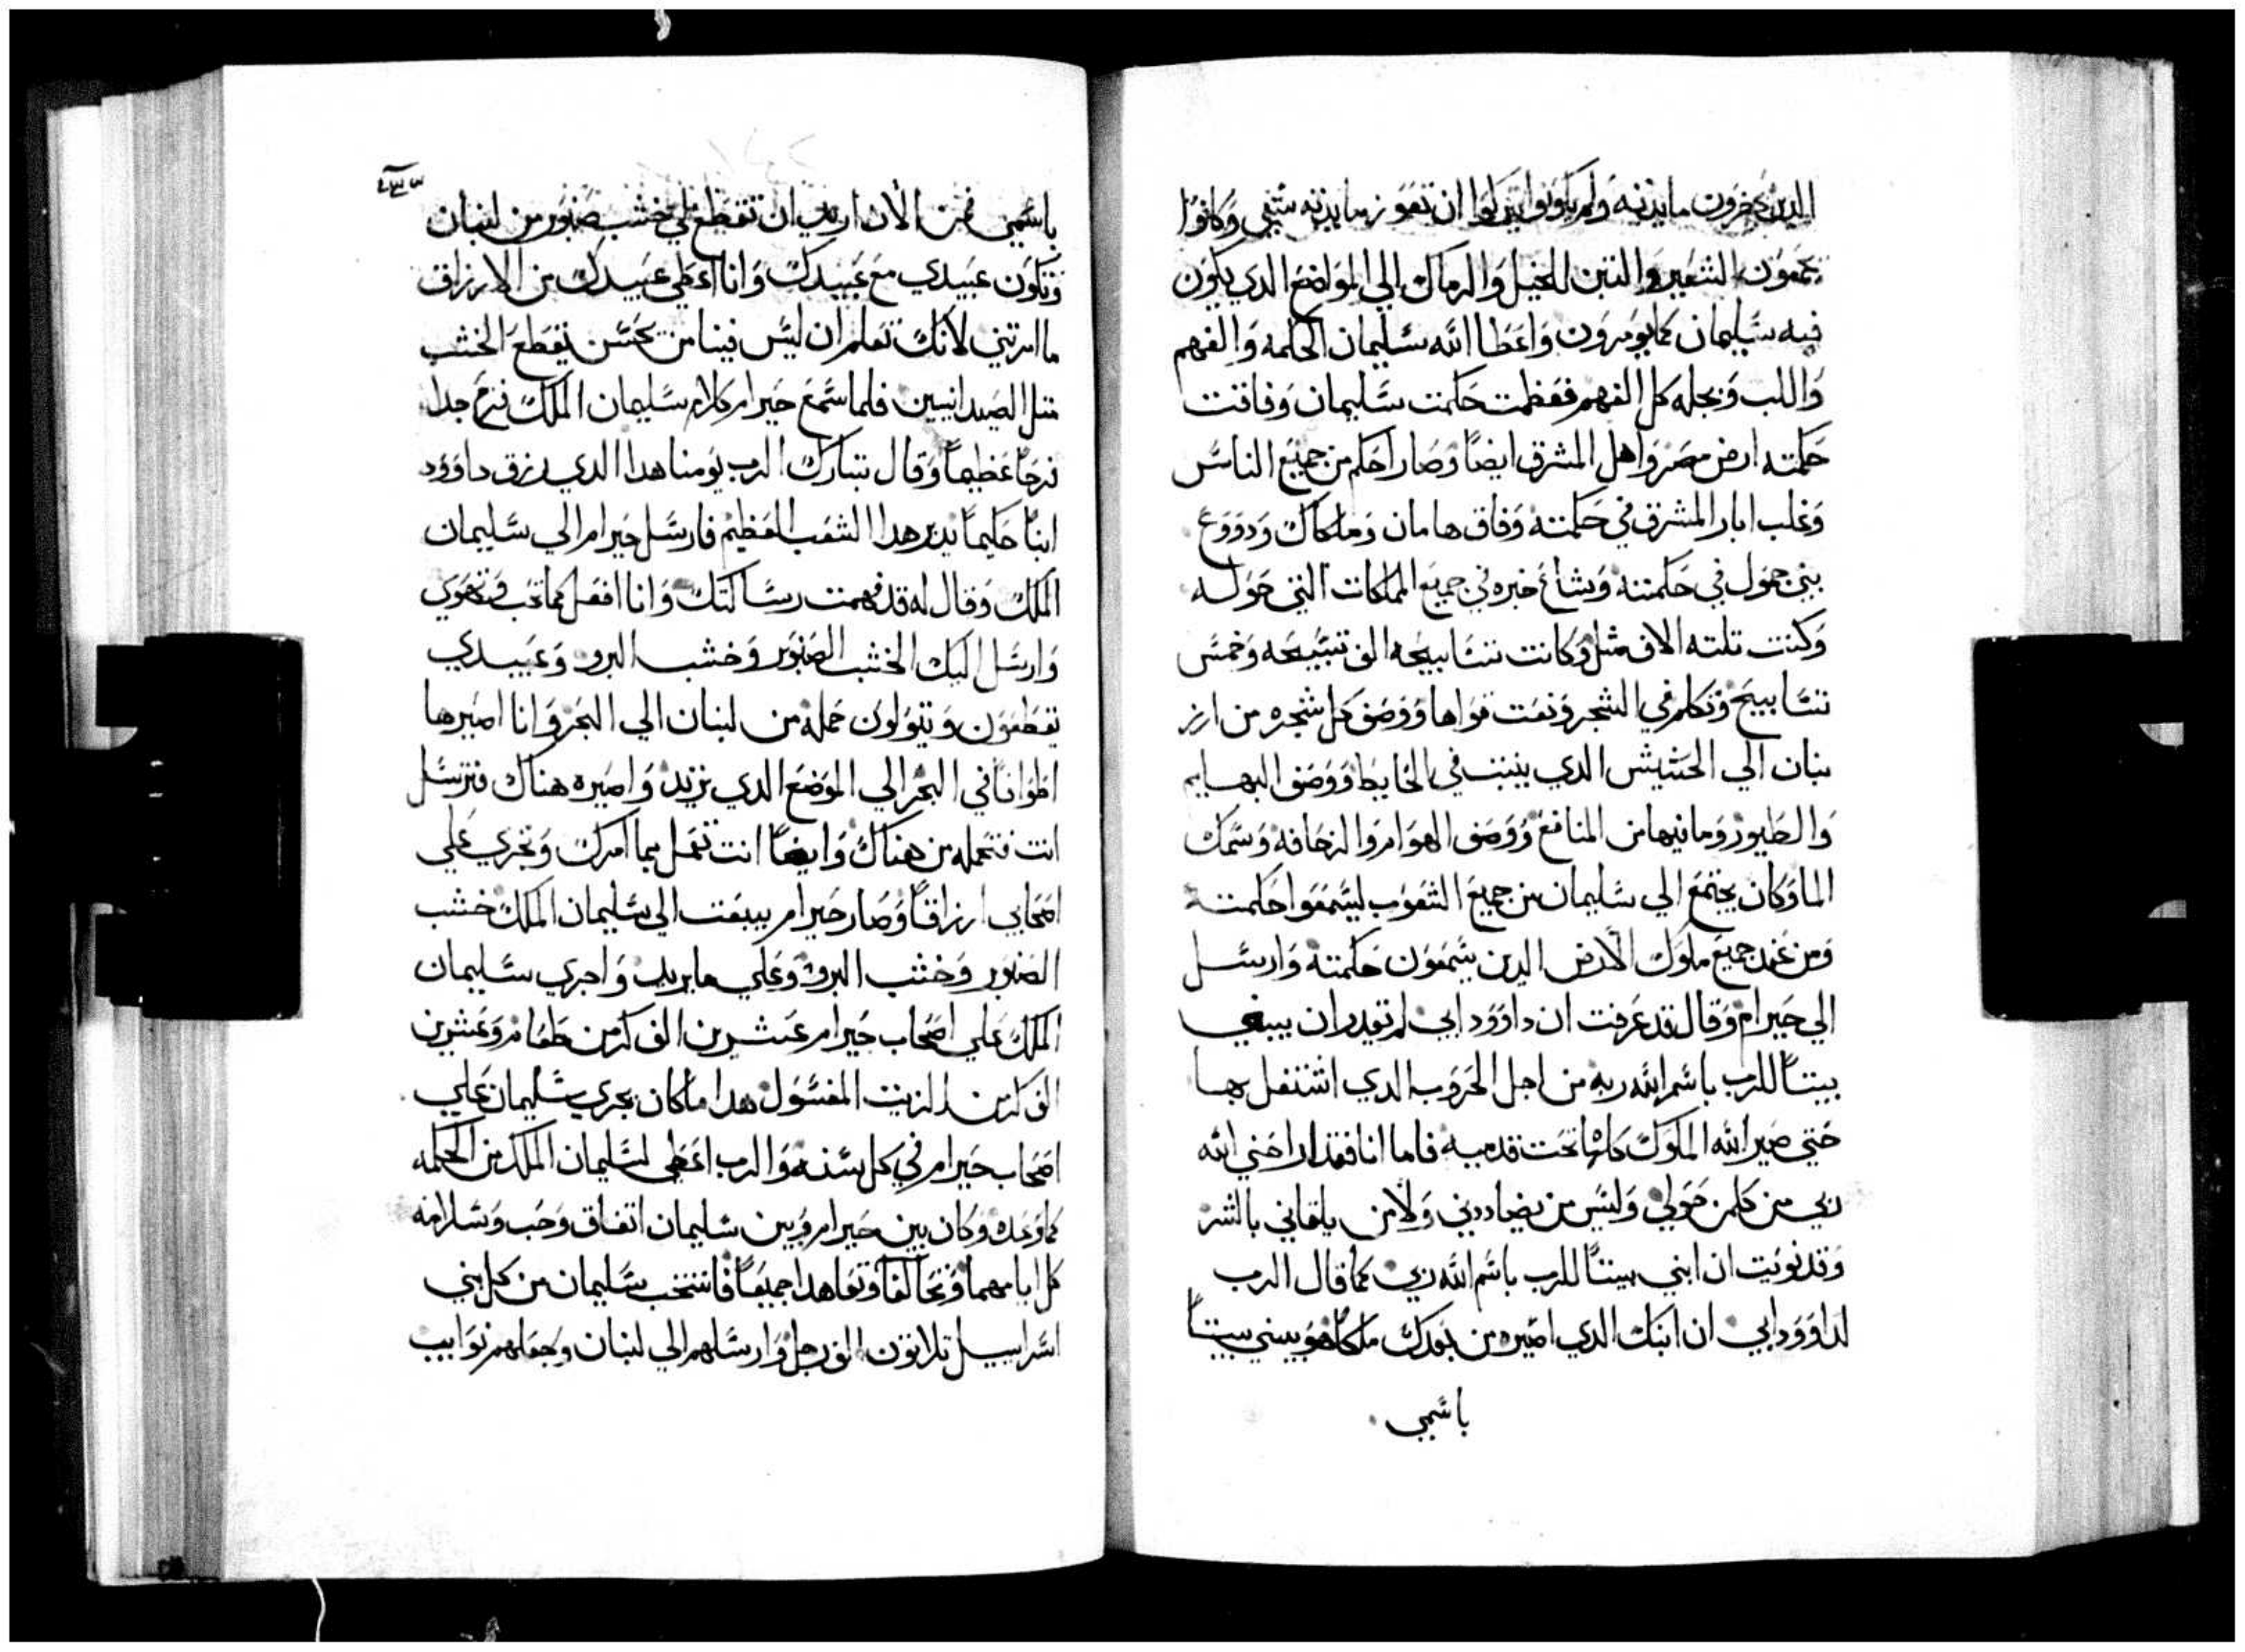 الدين يحضرون مايدته ولم يكونوا يتركوا ان تعوز مايدته شي وكانوا
يجمعون الشعير والتبن للخيل والرماك الي المواضع الدي يكون
فيه سليمان كما يومرون واعطا الله سليمان الحكمه والفهم
واللب ونحله كل الفهم فعظمت حكمت سليمان وفاقت
حكمته ارض مصر واهل المشرق ايضا وصار احكم من جميع الناس
وغلب ابار المشرق في حكمته وفاق هامان وملكاك ودووع
بني حمول في حكمته وشاع خبره في جميع المملكات التي حوله
وكنت تلته الاف مثل وكانت تسابيحه الف تسبيحه وخمس
تسابيح وتكلم في الشجر ونعت قواها ووصف كل شجره من ارز
لبنان الي الحشيش الدي ينبت في الحايط ووصف البهايم
والطيور وما فيها من المنافع ووصف الهوام والزحافه وسمك
الما وكان يجتمع الي سليمان من جميع الشعوب ليسمعوا حكمته
ومن عند جميع ملوك الارض الدين يسمعون حكمته وارسل
الي حيرام وقال قد عرفت ان داوود ابي لم يقدر ان يبني
بيتا للرب باسم الله ربه من اجل الحروب الدي اشتغل بها
حتي صير الله الملوك كلها تحت قدميه فاما انا فقد اراحني الله
ربي من كلمن حولي وليس من يضاددني ولا من يلقاني بالشر
وقد نويت ان ابني بيتا للرب باسم الله ربي كما قال الرب
لداوود ابي ان ابنك الدي اصيره من بعدك ملكا هو يبني بيتا
باسمي
٢٣٣
باسمي فمن الان اريد ان تقطع لي خشب صنوبر من لبنان
وتكون عبيدي مع عبيدك وانا اعطي عبيدك من الارزاق
ما امرتني لانك تعلم ان ليس فينا من يحسن يقطع الخشب
متل الصيدانيين فلما سمع حيرام كلام سليمان الملك فرح جدا
فرحا عظيما وقال تبارك الرب يومنا هدا الدي رزق داوود
ابنا حكيما يدبر هدا الشعب العظيم فارسل حيرام الي سليمان
الملك وقال له قد فهمت رسالتك وانا افعل كما تحب وتهوي
وارسل اليك الخشب الصنوبر وخشب البرو وعبيدي
يقطعون ويتولون حمله من لبنان الي البحر وانا اصيرها
اطوافا في البحر الي الموضع الدي تريد واصيره هناك فترسل
انت فتحمله من هناك وايضا انت تعمل بما امرك وتجري علي
اصحابي ارزاقا وصار حيرام يبعت الي سليمان الملك خشب
الصنوبر وخشب البرو وعلي ما يريد واجري سليمان
الملك علي اصحاب حيرام عشرين الف كر من طعام وعشرين
الف كر من الزيت المغسول هدا ما كان يجري سليمان علي
اصحاب حيرام في كل سنه والرب اعطي لسليمان الملك من الحكمه
كما وعده وكان بين حيرام وبين سليمان اتفاق وحب وسلامه
كل ايامهما وتحالفا وتعاهدا جميعا فانتخب سليمان من كل بني
اسراييل تلاتون الف رجل وارسلهم الي لبنان وجعلهم نوايب